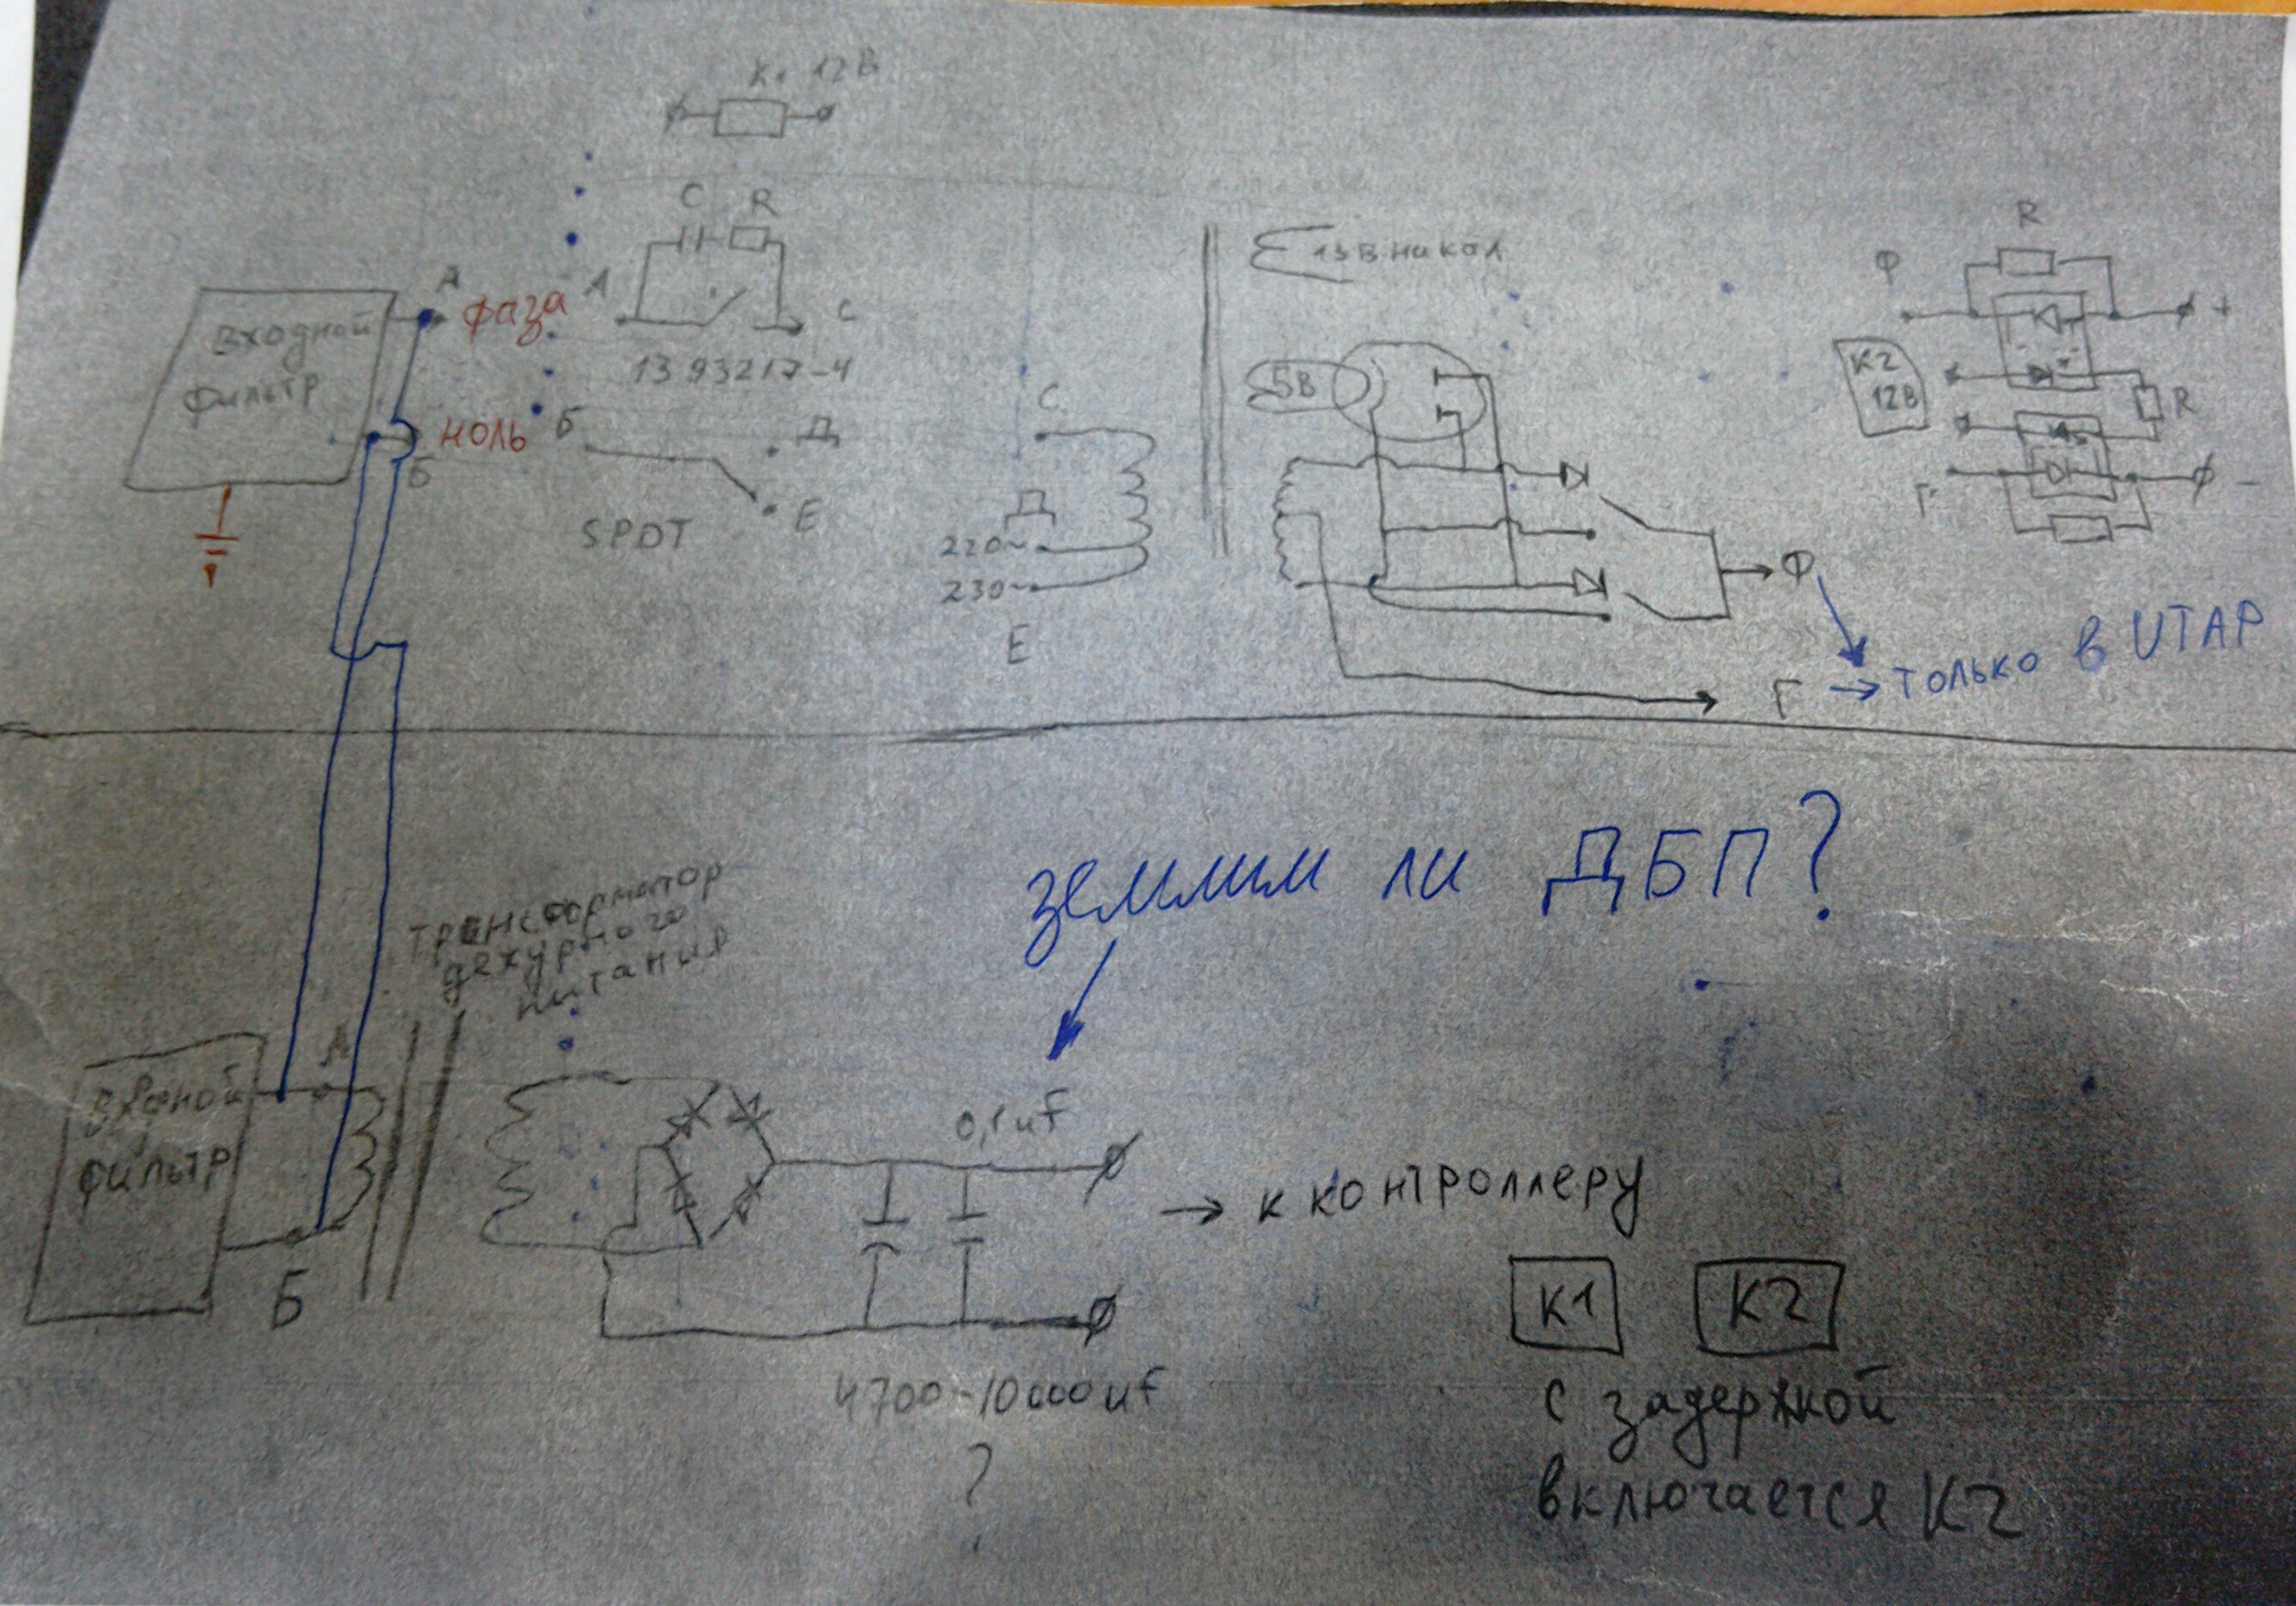 K1 12В
C R
А фаза А С
входной
фильтр
1393217-4
ноль Б Д
Б
SPDT Е
С
Д
220~
230~
Е
13В накал
5В
Ф
Г → только в UTAP
R
Ф +
К2
12В
R
Г -
землим ли ДБП?
трансформатор
дежурного
питания
А
входной
фильтр
Б
0,1uF
→ к контроллеру
4700-10000uF
?
К1 К2
с задержкой
включается К2